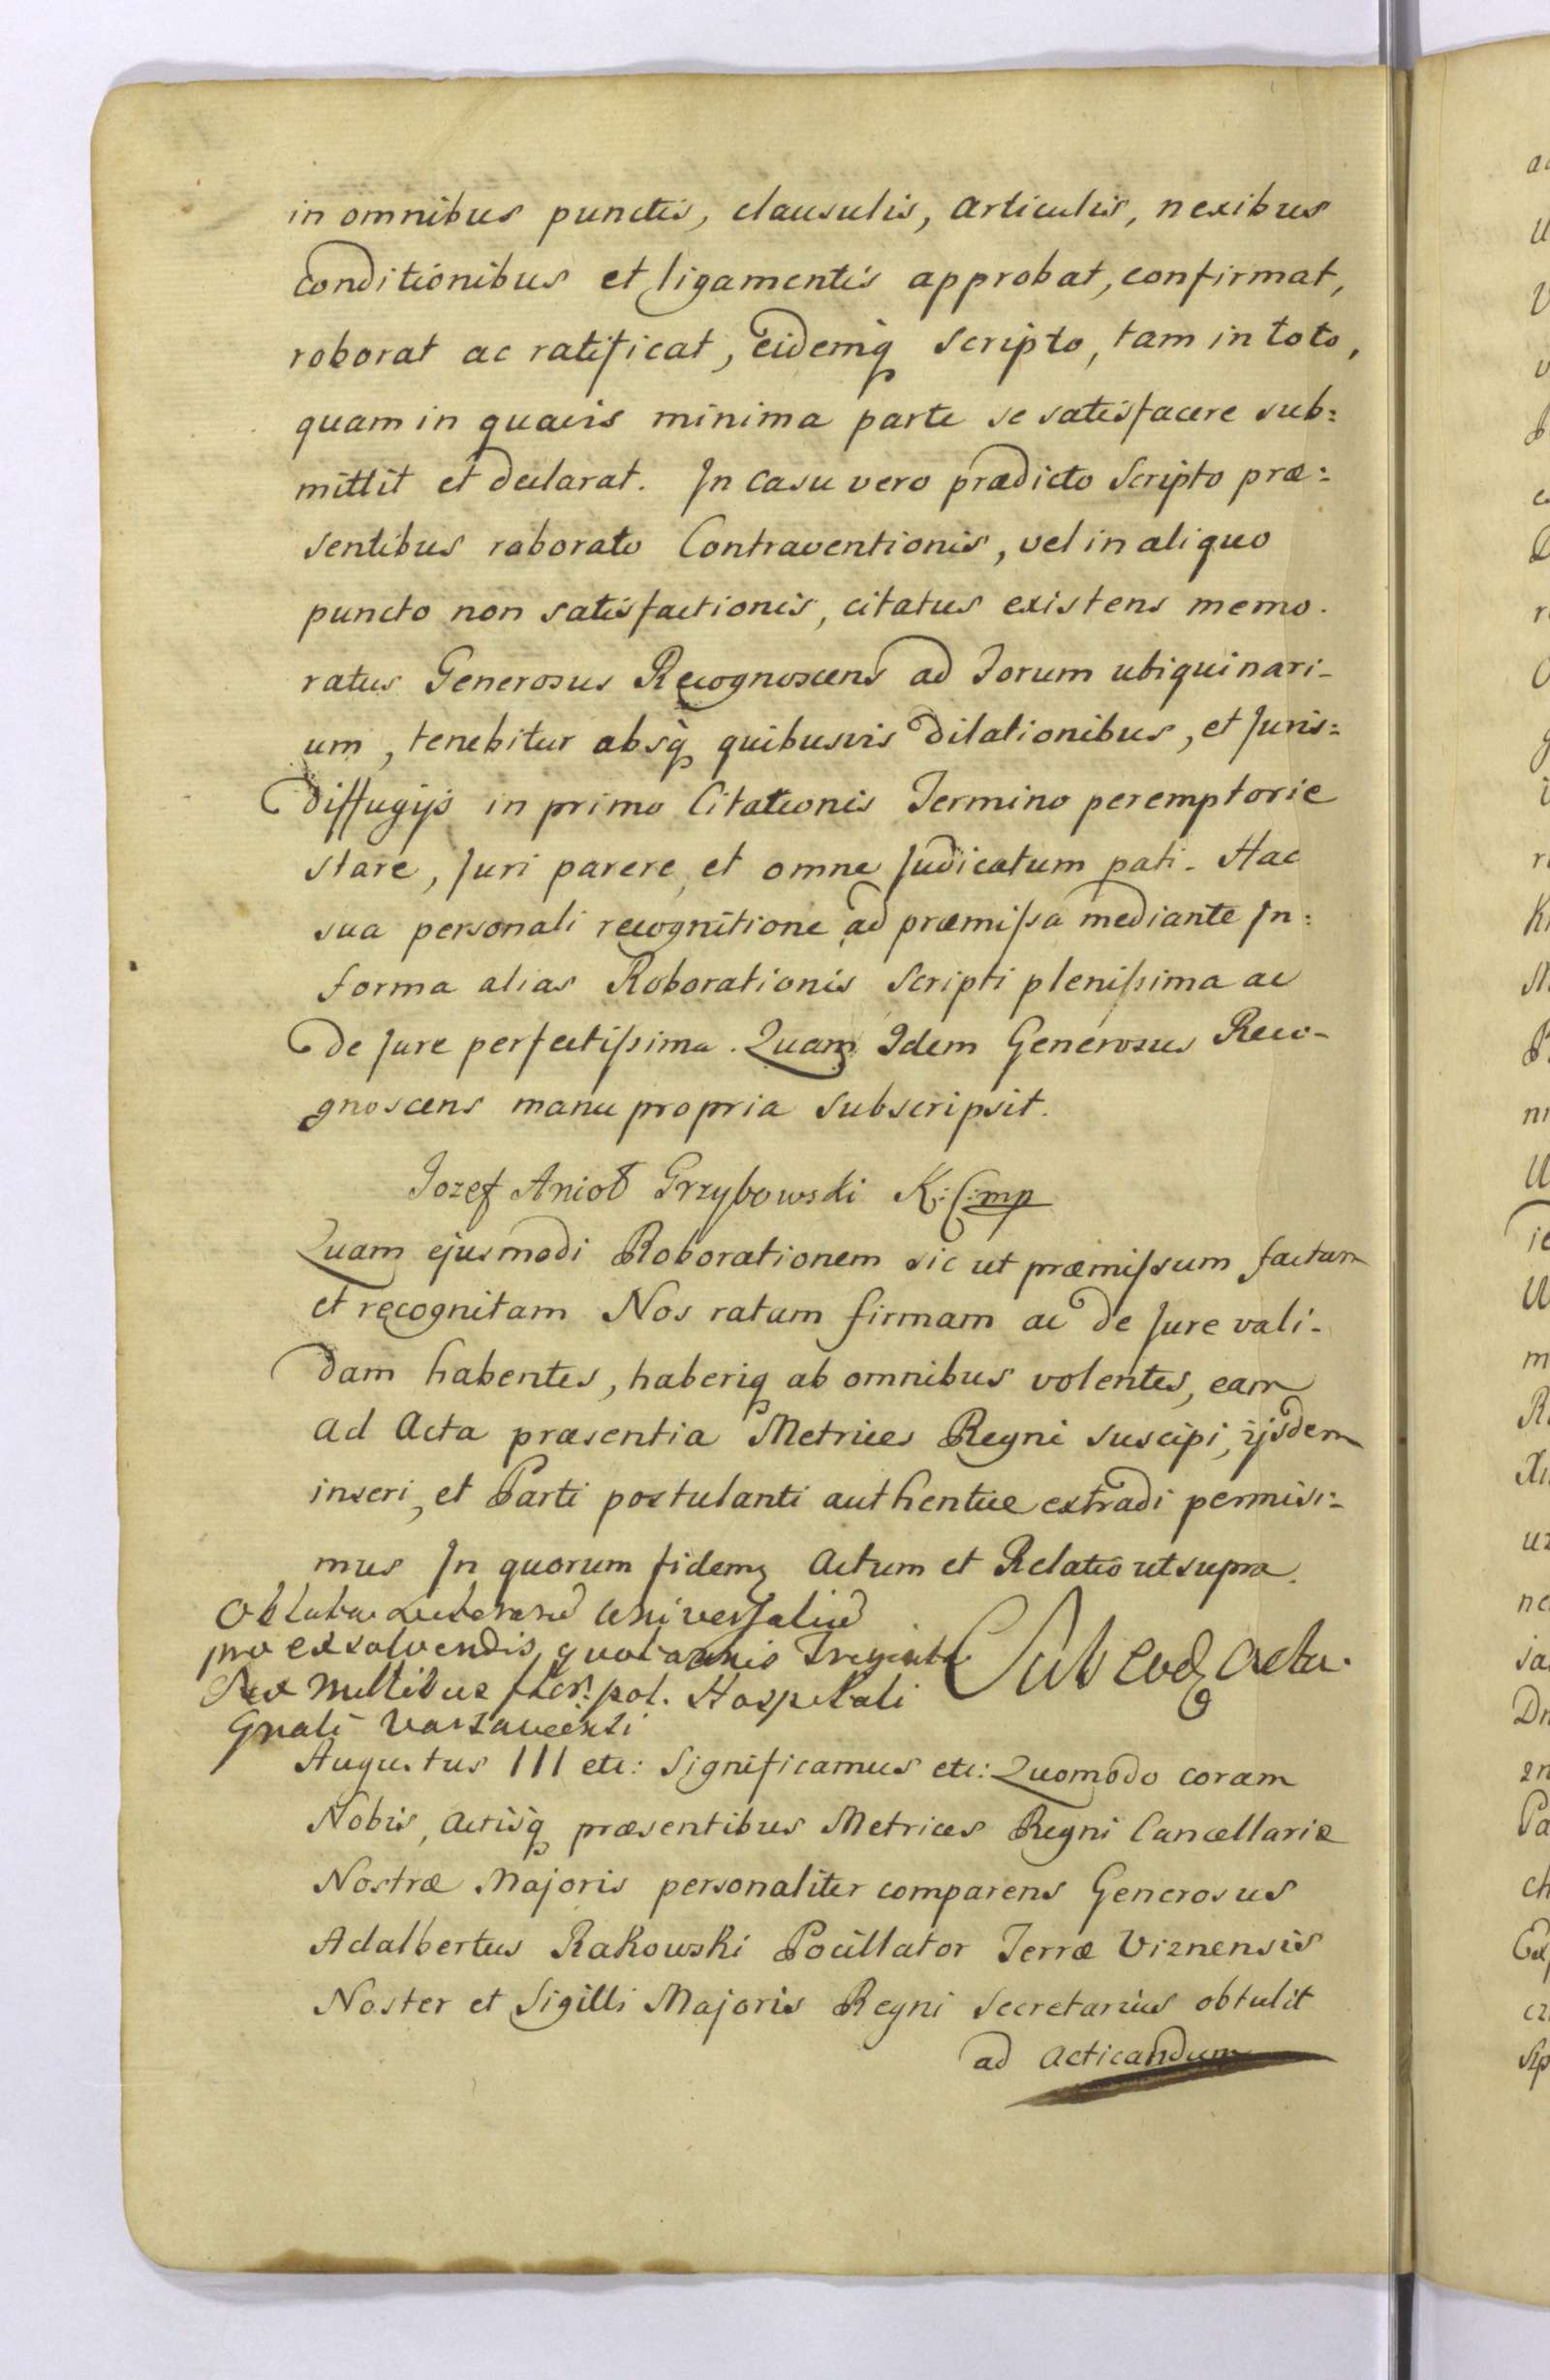 in omnibus punctis, clausulis, articulis, nexibus
conditionibus et ligamentis approbat, confirmat,
roborat ac ratificat, eidemq scripto, tam in toto,
quam in quavis minima parte se satisfacere sub=
mittit et declarat. In casu vero prædicto Scripto præ=
sentibus roborato Contraventionis, vel in aliquo
puncto non satisfactionis, citatus existens memo-
ratus Generosus Recognoscens ad Forum ubiquinari-
um, tenebitur absq quibusvis dilationibus, et Juris=
diffugijs in primo Citationis Termino peremptorie
stare, Juri parere, et omne Judicatum pati. Hac
sua personali recognitione ad præmissa mediante In=
forma alias Roborationis Scripti plenissima ac
de Jure perfectissima. Quam Idem Generosus Reco-
gnoscens manu propria subscripsit.
Jozef Anioł Grzybowski K: C: mp
Quam ejusmodi Roborationem sic ut præmissum factam
et recognitam Nos ratam firmam ac de Jure vali-
dam habentes, haberiq ab omnibus volentes, eam
ad Acta præsentia Metrices Regni suscipi, ijsdem
inseri, et Parti postulanti authentice extradi permisi=
mus In quorum fidem Actum et Relatio ut supra.
Oblata Universaliu
pro exsolvendis quotannis Triginta
Sex Millibus flor: pol. Hospitali
Gnali Varsaviensi
Sub eod Actu.
Augustus III etc: Significamus etc: Quomodo coram
Nobis, Actisq præsentibus Metrices Regni Cancellariæ
Nostræ Majoris personaliter comparens Generosus
Adalbertus Rakowski Pocillator Terræ Viznensis
Noster et Sigilli Majoris Regni Secretarius obtulit
ad acticandum